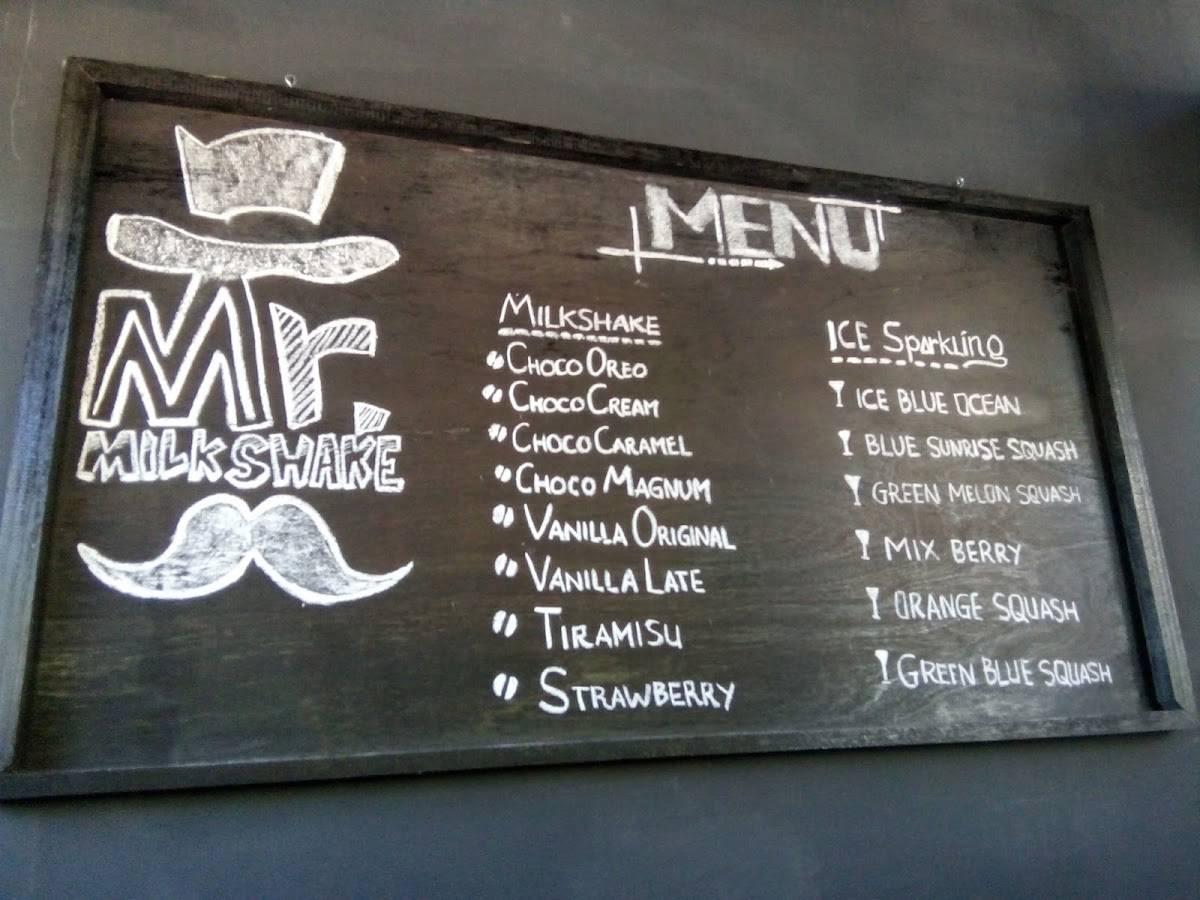 Mr.
MILKSHAKE
MENU
MILKSHAKE
CHOCO OREO
CHOCO CREAM
CHOCO CARAMEL
CHOCO MAGNUM
VANILLA ORIGINAL
VANILLA LATE
TIRAMISU
STRAWBERRY
ICE Sparkling
ICE BLUE OCEAN
BLUE SUNRISE SQUASH
GREEN MELON SQUASH
MIX BERRY
ORANGE SQUASH
GREEN BLUE SQUASH